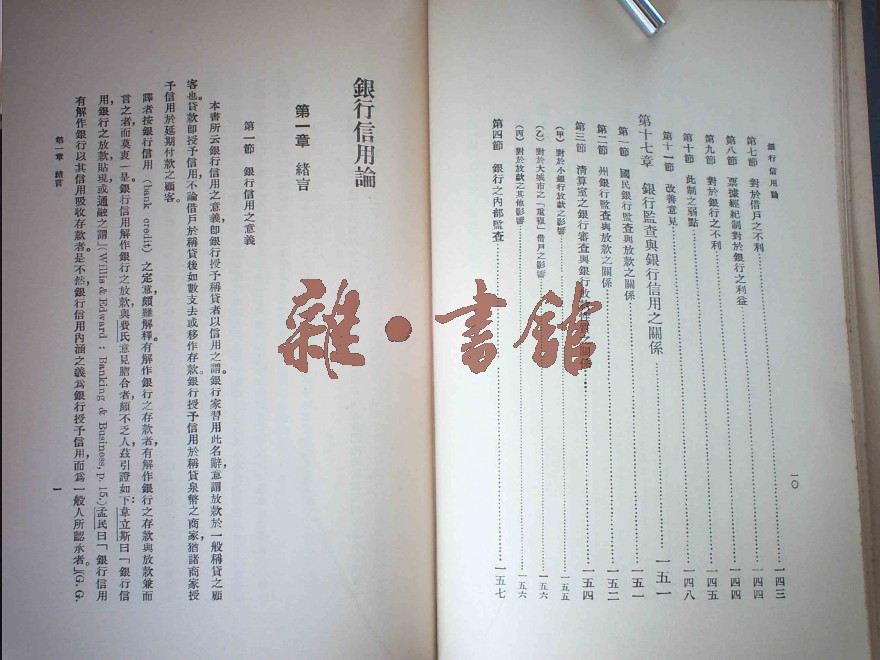 銀行信用論
一〇
第七節 對於借戶之不利……一四三
第八節 票據經紀制對於銀行之利益……一四四
第九節 對於銀行之不利……一四五
第十節 此制之弱點……一四八
第十一節 改善意見
第十七章 銀行監查與銀行信用之關係……一五一
第一節 國民銀行監查與放款之關係……一五一
第二節 州銀行監查與放款之關係……一五二
第三節 清算室之銀行審查與銀行放款之關係……一五四
(甲) 對於小銀行放款之影響……一五五
(乙) 對於大城市之「重複」借戶之影響……一五六
(丙) 對於放款之其他影響……一五六
第四節 銀行之內部監查……一五七
銀行信用論
第一章 緒言
第一節 銀行信用之意義
本書所云銀行信用之意義卽銀行授予稱貸者以信用之謂。銀行家習用此名辭,意謂放款於一般稱貸之顧
客也。貸款卽授予信用,不論借戶於稱貸後如數支去或移作存款。銀行授予信用於稱貸泉幣之商家,猶諸商家授
予信用於延期付款之顧客。
譯者按銀行信用 (bank credit) 之定意,頗難解釋,有解作銀行之存款者,有解作銀行之存款與放款兼而
言之者,而莫衷一是。銀行信用解作銀行之放款與費氏意見脗合者,頗不乏人,茲引證如下:韋立斯曰「銀行信
用銀行之放款貼現或通融之謂」(Willis & Edward: Banking & Business, p. 15.) 孟民曰「銀行信用
有解作銀行以其信用吸收存款者,是不然,銀行信用內涵之義爲銀行授予信用,而爲一般人所認承者。」(G. G.
第一章 緒言
一
雜·書館